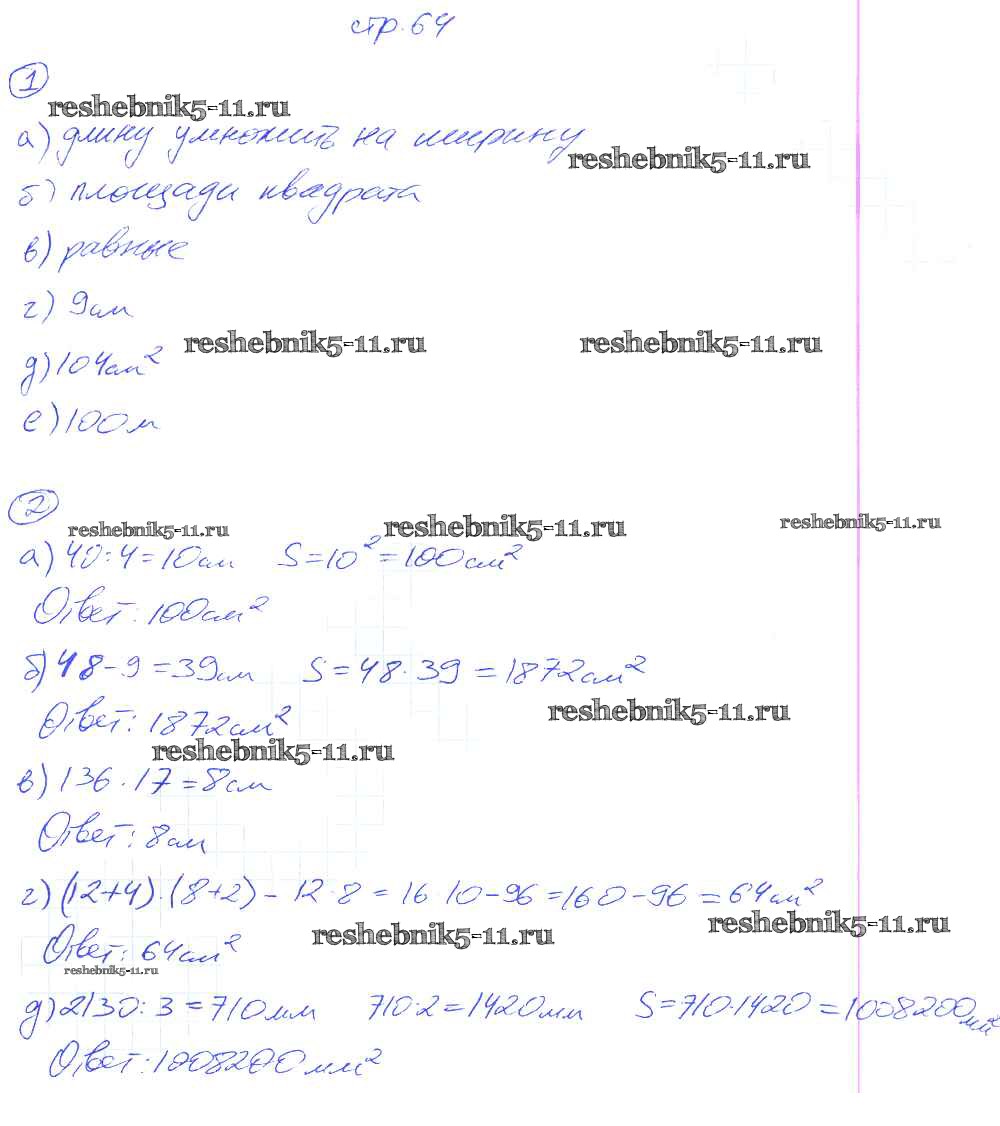 стр. 64
1
reshebnik5-11.ru
а) длину умножить на ширину
reshebnik5-11.ru
б) площади квадрата
в) равные
г) 9 см
reshebnik5-11.ru reshebnik5-11.ru
д) 104 см²
е) 100 м
2
reshebnik5-11.ru reshebnik5-11.ru reshebnik5-11.ru
а) 40:4=10 см S=10²=100 см²
Ответ: 100 см²
б) 48-9=39 см S=48·39=1872 см²
reshebnik5-11.ru
Ответ: 1872 см²
reshebnik5-11.ru
в) 136·17=8 см
Ответ: 8 см
г) (12+4)·(8+2)-12·8=16·10-96=160-96=64 см²
reshebnik5-11.ru reshebnik5-11.ru
Ответ: 64 см²
reshebnik5-11.ru
д) 2130:3=710 мм 710·2=1420 мм S=710·1420=1008200 мм²
Ответ: 1008200 мм²